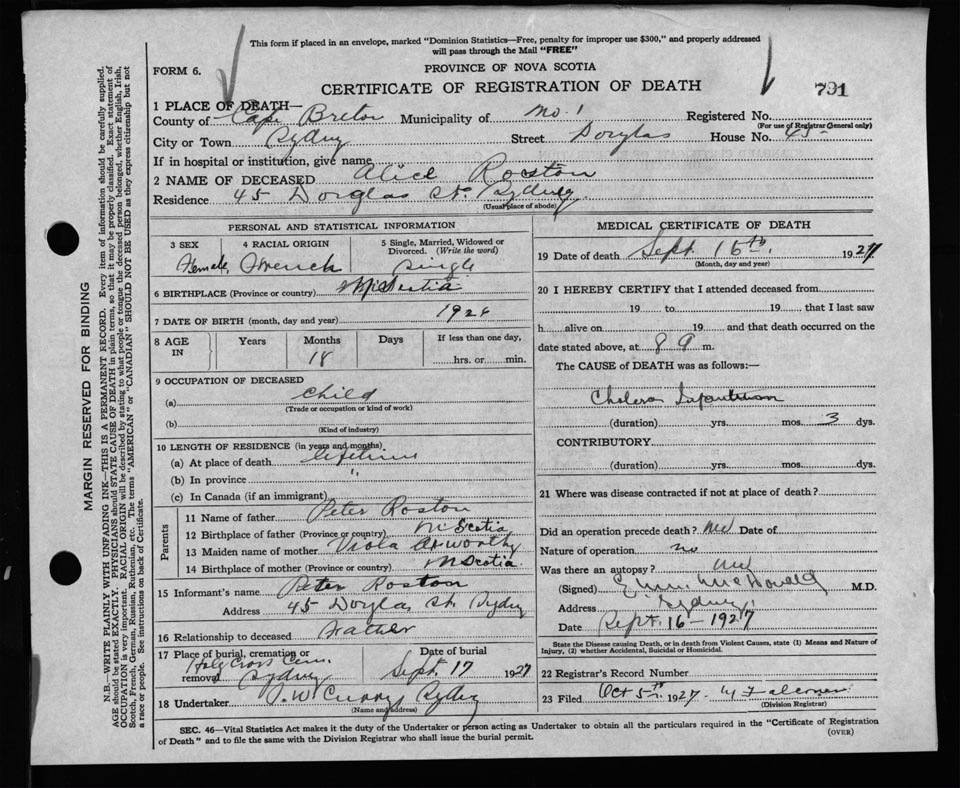 This form if placed in an envelope, marked "Dominion Statistics—Free, penalty for improper use $300," and properly addressed
will pass through the Mail "FREE"
FORM 6.
PROVINCE OF NOVA SCOTIA
CERTIFICATE OF REGISTRATION OF DEATH
791
1 PLACE OF DEATH—
County of Cape Breton Municipality of No. 1 Registered No.
(For use of Registrar General only)
City or Town Sydney Street Douglas House No. 45
If in hospital or institution, give name
2 NAME OF DECEASED Alice Roston
Residence 45 Douglas St. Sydney
(Usual place of abode)
PERSONAL AND STATISTICAL INFORMATION
3 SEX 4 RACIAL ORIGIN 5 Single, Married, Widowed or Divorced. (Write the word)
Female, French Single
6 BIRTHPLACE (Province or country) N Scotia
7 DATE OF BIRTH (month, day and year) 1926
8 AGE IN Years Months Days If less than one day,
18 hrs. or min.
9 OCCUPATION OF DECEASED
(a) Child
(Trade or occupation or kind of work)
(b)
(Kind of industry)
10 LENGTH OF RESIDENCE (in years and months)
(a) At place of death lifetime
(b) In province "
(c) In Canada (if an immigrant)
Parents
11 Name of father Peter Roston
12 Birthplace of father (Province or country) N Scotia
13 Maiden name of mother Viola Axworthy
14 Birthplace of mother (Province or country) N Scotia
15 Informant's name Peter Roston
Address 45 Douglas St. Sydney
16 Relationship to deceased Father
17 Place of burial, cremation or removal Date of burial
Holy Cross Cem. Sydney Sept. 17 1927
18 Undertaker Sydney
(Name and address)
MEDICAL CERTIFICATE OF DEATH
19 Date of death Sept. 16th 1927
(Month, day and year)
20 I HEREBY CERTIFY that I attended deceased from
19 to 19 , that I last saw
h alive on 19 and that death occurred on
date stated above, at 8 m.
The CAUSE of DEATH was as follows:—
Cholera Infantum
(duration) yrs. mos. 3 dys.
CONTRIBUTORY
(duration) yrs. mos. dys.
21 Where was disease contracted if not at place of death?
Did an operation precede death? Date of
Nature of operation no
Was there an autopsy?
(Signed) McDonald M.D.
Address Sydney
Date Sept. 16 - 1927
State the Disease causing Death, or in death from Violent Causes, state (1) Means and Nature of
Injury, (2) whether Accidental, Suicidal or Homicidal.
22 Registrar's Record Number
23 Filed Oct 5th 1927
(Division Registrar)
SEC. 46—Vital Statistics Act makes it the duty of the Undertaker or person acting as Undertaker to obtain all the particulars required in the "Certificate of Registration
of Death" and to file the same with the Division Registrar who shall issue the burial permit.
(OVER)
MARGIN RESERVED FOR BINDING
N.B.—WRITE PLAINLY WITH UNFADING INK—THIS IS A PERMANENT RECORD. Every item of information should be carefully supplied.
AGE should be stated EXACTLY. PHYSICIANS should STATE CAUSE OF DEATH in plain terms, so that it may be properly classified. Exact statement of
OCCUPATION is very important. RACIAL ORIGIN will be described by stating to what people or tongue the deceased person belonged, whether English, Irish,
Scotch, French, German, Russian, Ruthenian, etc. The terms "AMERICAN" or "CANADIAN" SHOULD NOT BE USED as they express citizenship but not
a race or people. See instructions on back of Certificate.